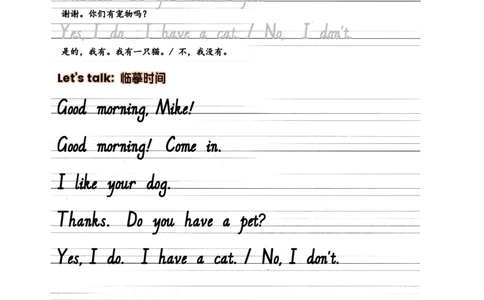 谢谢。你们有宠物吗？
Yes, I do. I have a cat. / No, I don't.
是的，我有。我有一只猫。/ 不，我没有。
Let's talk: 临摹时间
Good morning, Mike!
Good morning! Come in.
I like your dog.
Thanks. Do you have a pet?
Yes, I do. I have a cat. / No, I don't.